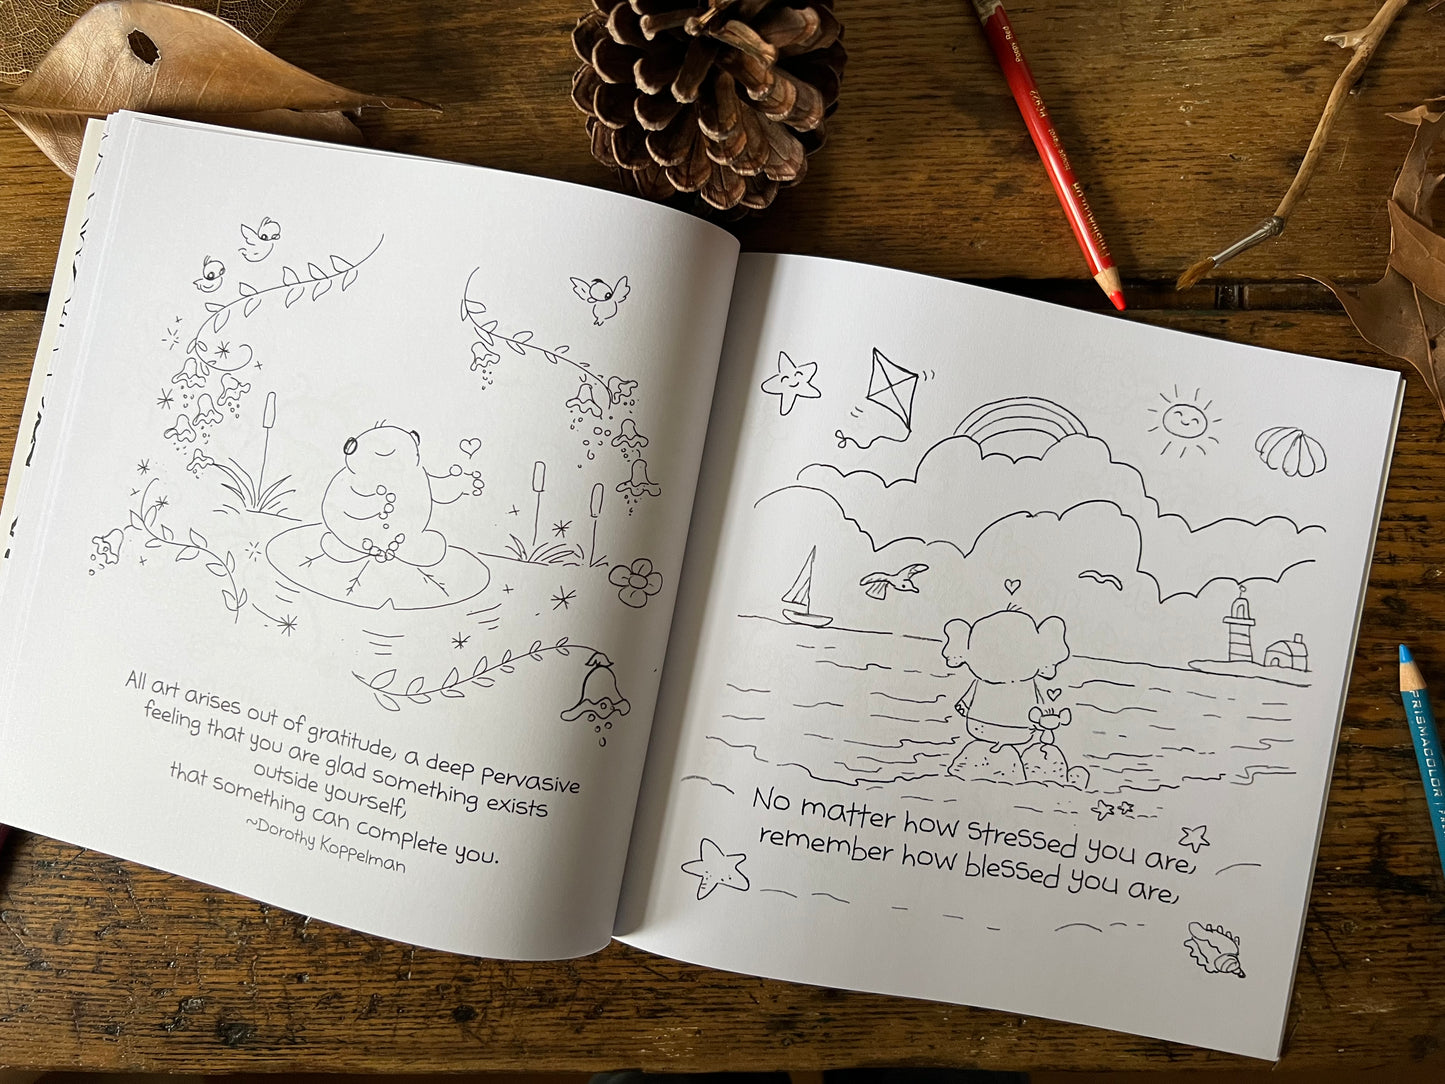 All art arises out of gratitude, a deep pervasive
feeling that you are glad something exists
outside yourself,
that something can complete you.
~Dorothy Koppelman
No matter how stressed you are,
remember how blessed you are,
PRISMACOLOR
PC922
Poppy Red
PRISMACOLOR